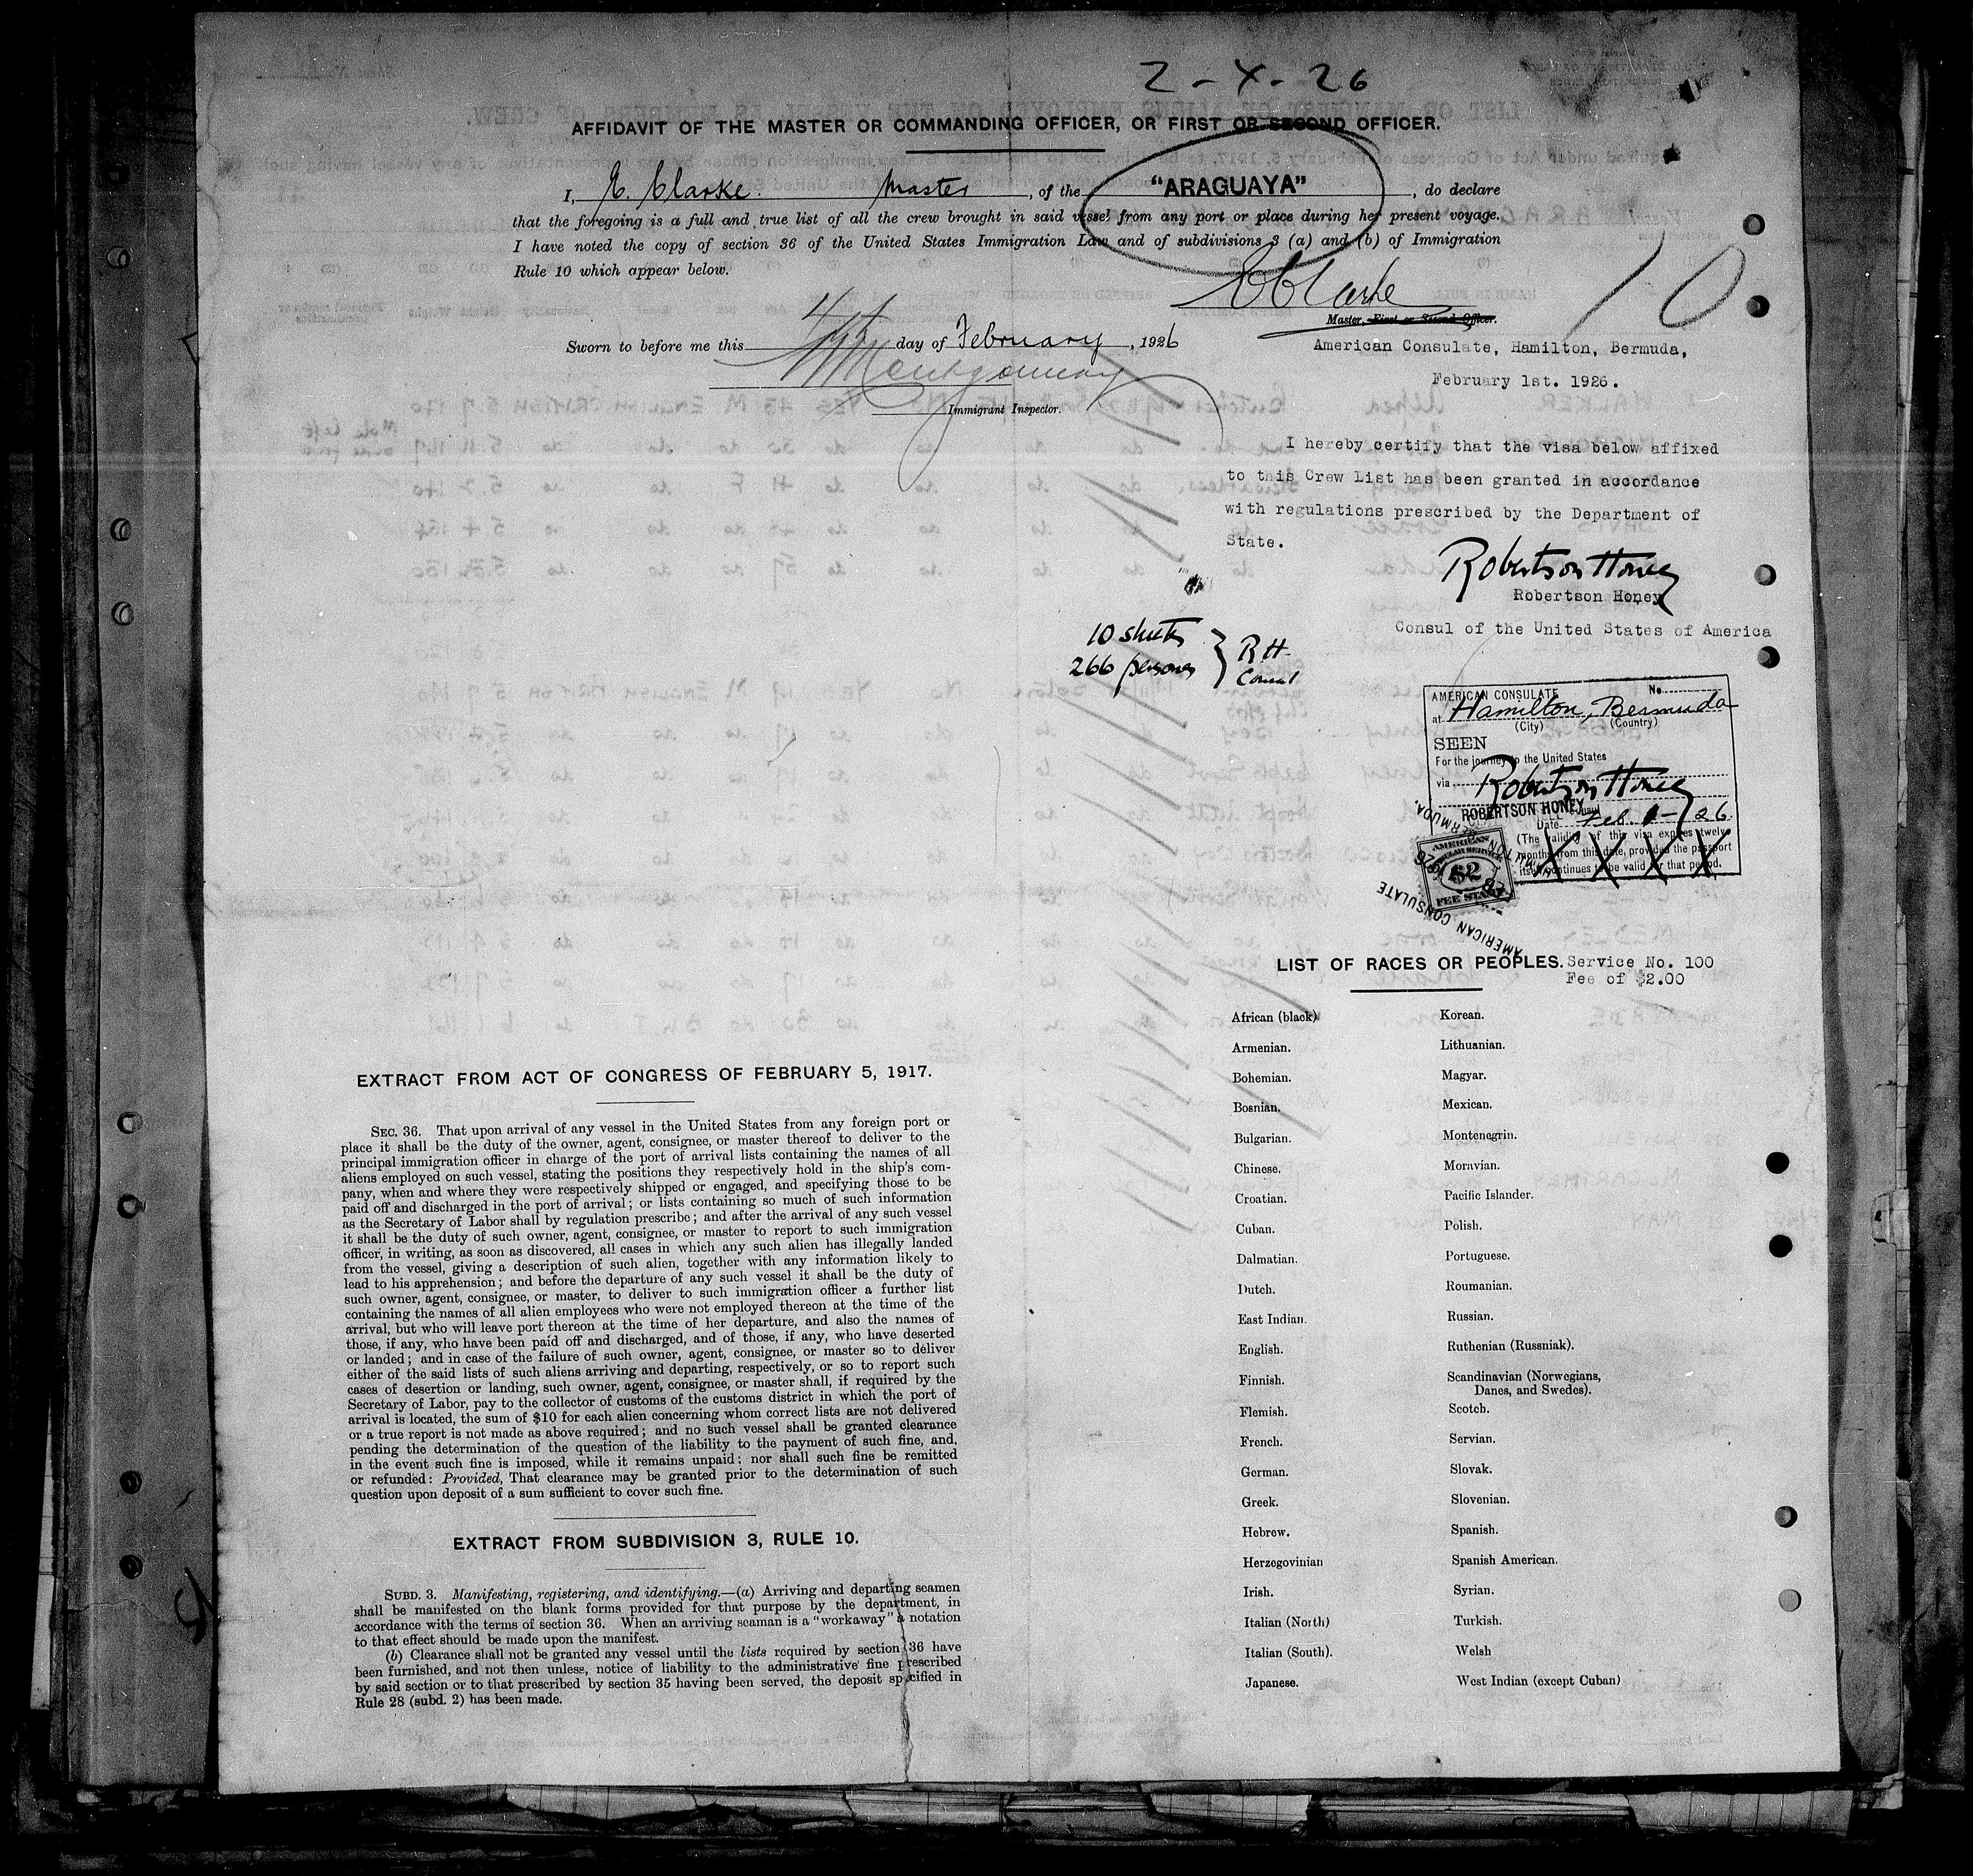 2-4-26
AFFIDAVIT OF THE MASTER OR COMMANDING OFFICER, OR FIRST OR SECOND OFFICER.
I, E. Clarke. Master, of the "ARAGUAYA", do declare
that the foregoing is a full and true list of all the crew brought in said vessel from any port or place during her present voyage.
I have noted the copy of section 36 of the United States Immigration Law and of subdivisions 3 (a) and (b) of Immigration
Rule 10 which appear below.
E Clarke
10
Master, First or Second Officer.
Sworn to before me this 4th day of February, 1926
Montgomery
Immigrant Inspector.
American Consulate, Hamilton, Bermuda,
February 1st. 1926.
I hereby certify that the visa below affixed
to this Crew List has been granted in accordance
with regulations prescribed by the Department of
State.
Robertson Honey
Robertson Honey
Consul of the United States of America
10 sheets
266 persons } RH
Consul
AMERICAN CONSULATE No.
at Hamilton, Bermuda
(City) (Country)
SEEN
For the journey to the United States
via
Robertson Honey
ROBERTSON HONEY
Consul
Date Feb. 1-/26.
(The validity of this visa expires twelve
months from this date, provided the passport
itself continues to be valid for that period.
XXXX
AMERICAN
CONSULAR SERVICE
$2
FEE STAMP
AMERICAN CONSULATE
HAMILTON BERMUDA.
FEB 1926
LIST OF RACES OR PEOPLES.
Service No. 100
Fee of $2.00
African (black)
Armenian.
Bohemian.
Bosnian.
Bulgarian.
Chinese.
Croatian.
Cuban.
Dalmatian.
Dutch.
East Indian.
English.
Finnish.
Flemish.
French.
German.
Greek.
Hebrew.
Herzegovinian
Irish.
Italian (North)
Italian (South).
Japanese.
Korean.
Lithuanian.
Magyar.
Mexican.
Montenegrin.
Moravian.
Pacific Islander.
Polish.
Portuguese.
Roumanian.
Russian.
Ruthenian (Russniak).
Scandinavian (Norwegians,
Danes, and Swedes).
Scotch.
Servian.
Slovak.
Slovenian.
Spanish.
Spanish American.
Syrian.
Turkish.
Welsh
West Indian (except Cuban)
EXTRACT FROM ACT OF CONGRESS OF FEBRUARY 5, 1917.
SEC. 36. That upon arrival of any vessel in the United States from any foreign port or
place it shall be the duty of the owner, agent, consignee, or master thereof to deliver to the
principal immigration officer in charge of the port of arrival lists containing the names of all
aliens employed on such vessel, stating the positions they respectively hold in the ship's com-
pany, when and where they were respectively shipped or engaged, and specifying those to be
paid off and discharged in the port of arrival; or lists containing so much of such information
as the Secretary of Labor shall by regulation prescribe; and after the arrival of any such vessel
it shall be the duty of such owner, agent, consignee, or master to report to such immigration
officer, in writing, as soon as discovered, all cases in which any such alien has illegally landed
from the vessel, giving a description of such alien, together with any information likely to
lead to his apprehension; and before the departure of any such vessel it shall be the duty of
such owner, agent, consignee, or master, to deliver to such immigration officer a further list
containing the names of all alien employees who were not employed thereon at the time of the
arrival, but who will leave port thereon at the time of her departure, and also the names of
those, if any, who have been paid off and discharged, and of those, if any, who have deserted
or landed; and in case of the failure of such owner, agent, consignee, or master so to deliver
either of the said lists of such aliens arriving and departing, respectively, or so to report such
cases of desertion or landing, such owner, agent, consignee, or master shall, if required by the
Secretary of Labor, pay to the collector of customs of the customs district in which the port of
arrival is located, the sum of $10 for each alien concerning whom correct lists are not delivered
or a true report is not made as above required; and no such vessel shall be granted clearance
pending the determination of the question of the liability to the payment of such fine, and,
in the event such fine is imposed, while it remains unpaid; nor shall such fine be remitted
or refunded: Provided, That clearance may be granted prior to the determination of such
question upon deposit of a sum sufficient to cover such fine.
EXTRACT FROM SUBDIVISION 3, RULE 10.
SUBD. 3. Manifesting, registering, and identifying.—(a) Arriving and departing seamen
shall be manifested on the blank forms provided for that purpose by the department, in
accordance with the terms of section 36. When an arriving seaman is a "workaway" a notation
to that effect should be made upon the manifest.
(b) Clearance shall not be granted any vessel until the lists required by section 36 have
been furnished, and not then unless, notice of liability to the administrative fine prescribed
by said section or to that prescribed by section 35 having been served, the deposit specified in
Rule 28 (subd. 2) has been made.